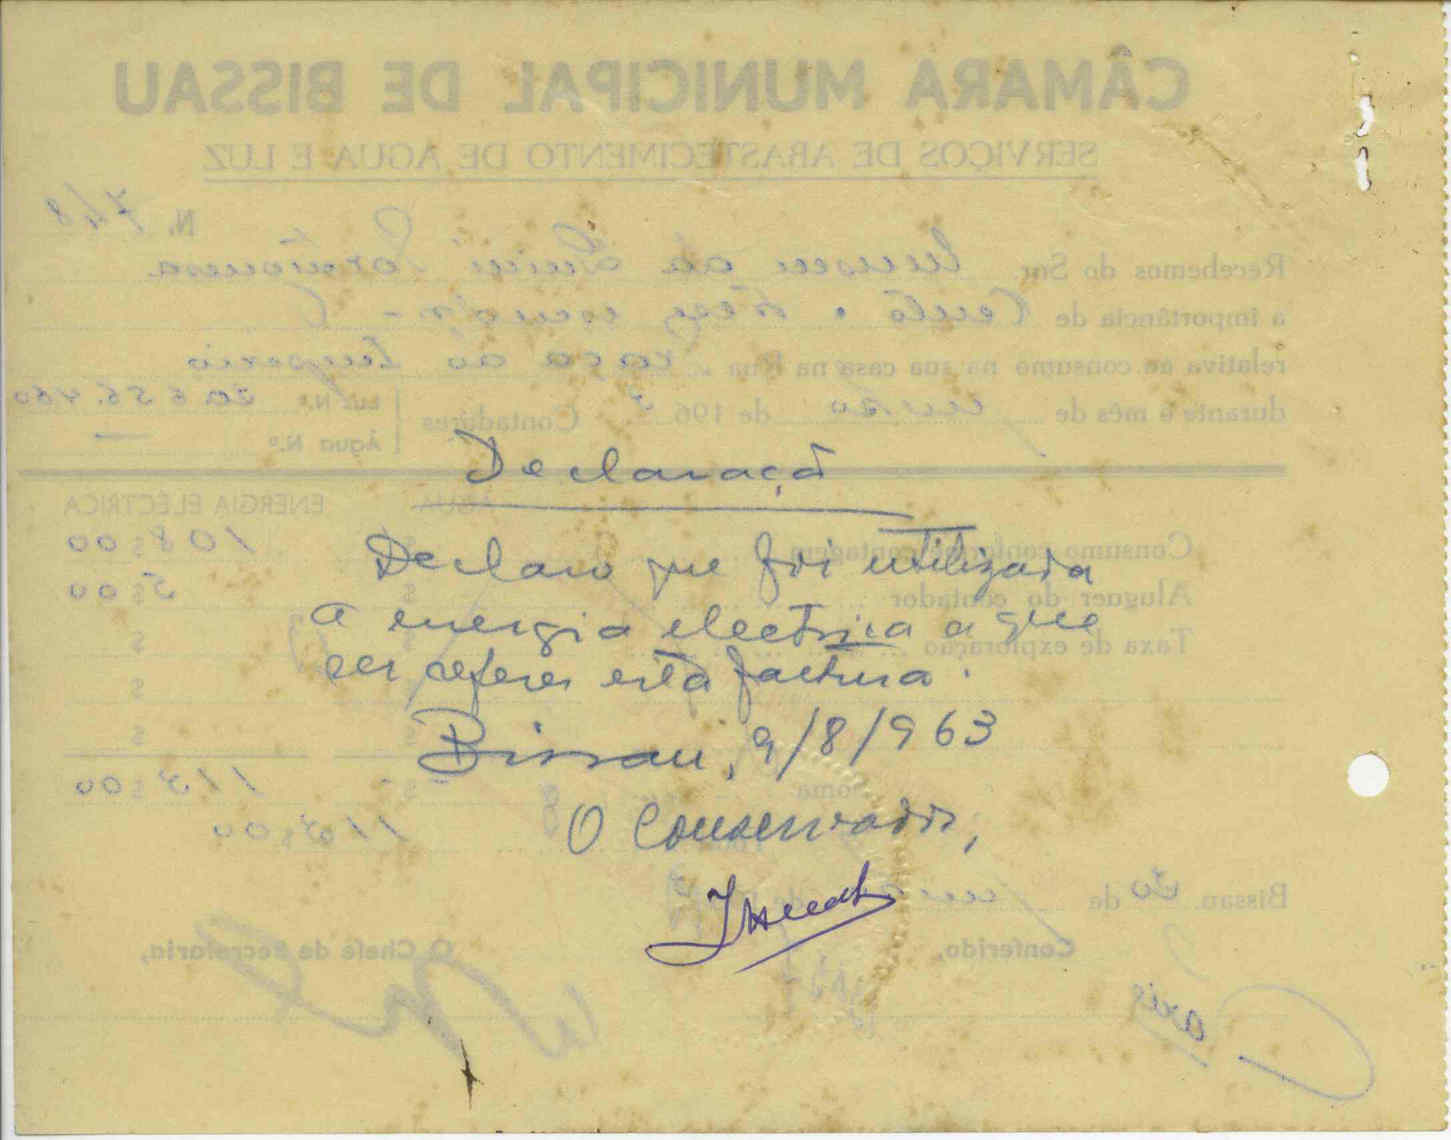 Declaração
Declaro que foi utilizada
a energia electrica a que
se refere esta factura.
Bissau, 9/8/963
O Conservador,
CÂMARA MUNICIPAL DE BISSAU
SERVIÇOS DE ABASTECIMENTO DE AGUA E LUZ
N. 748
Recebemos do Snr. Museu da Guiné Portuguesa
a importância de Cento e treze escudos
relativa ao consumo na sua casa na Rua Praça do Imperio
durante o mês de de 196 Contadores
Luz N.º
Água N.º —
AGUA ENERGIA ELÉCTRICA
Consumo conforme contagem 108$00
Aluguer do contador $ 5$00
Taxa de exploração $
$
$ $
Soma $ 113$00
113$00
Bissau, 30 de de
Conferido, O Chefe de Secretaria,